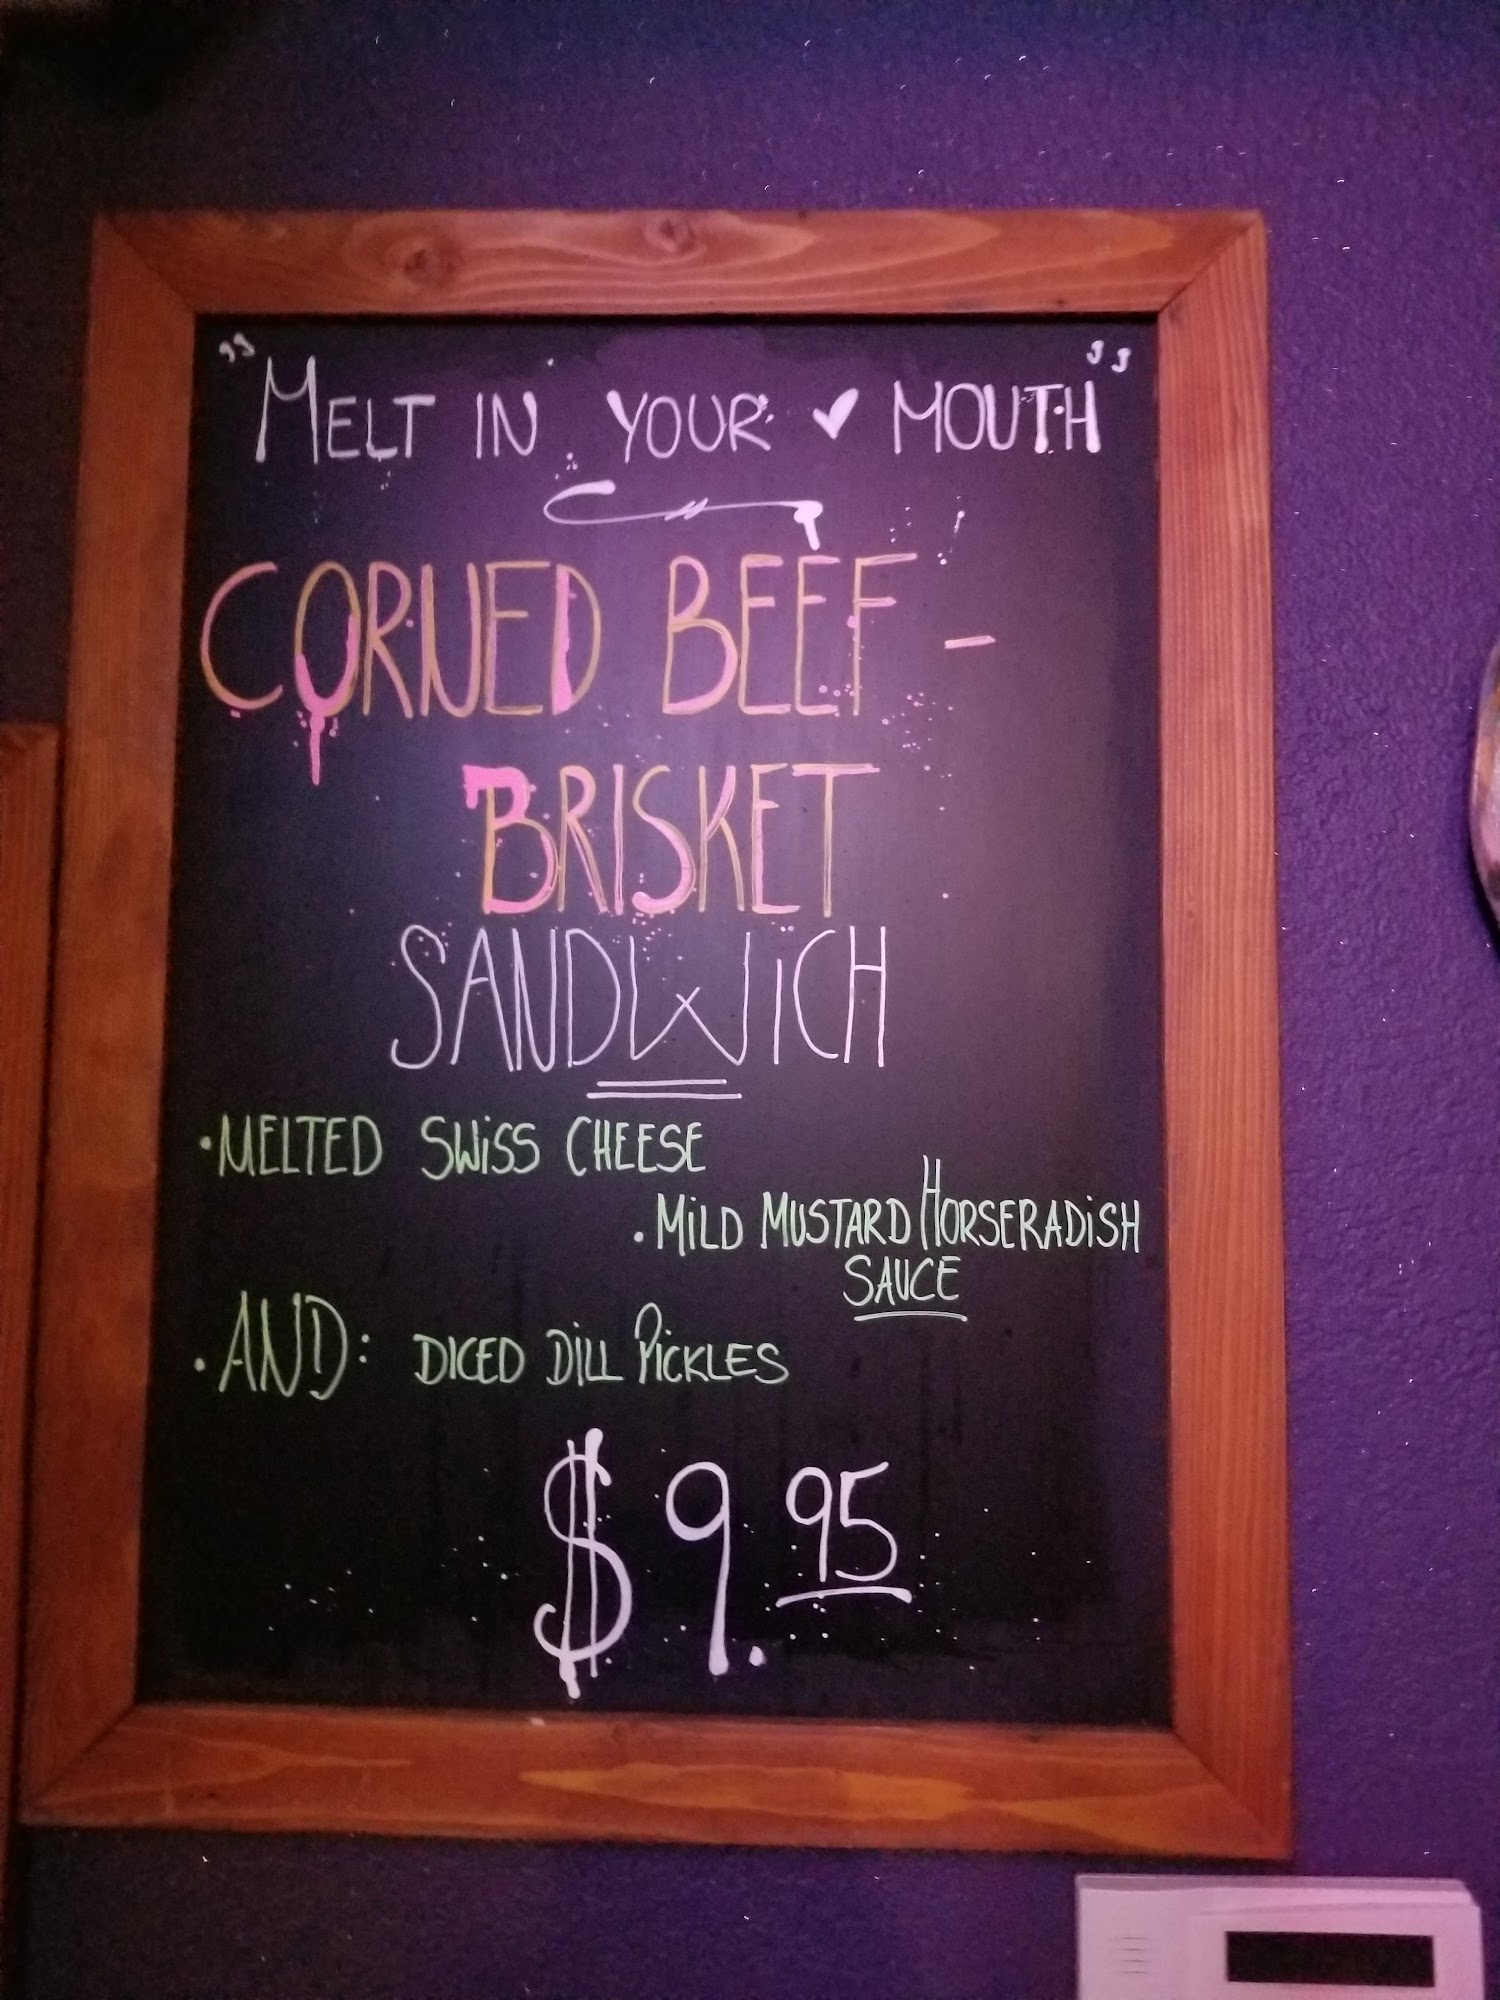 "MELT IN YOUR ♥ MOUTH"
CORNED BEEF -
BRISKET
SANDWICH
• MELTED SWISS CHEESE
• MILD MUSTARD HORSERADISH
SAUCE
• AND: DICED DILL PICKLES
$9.95